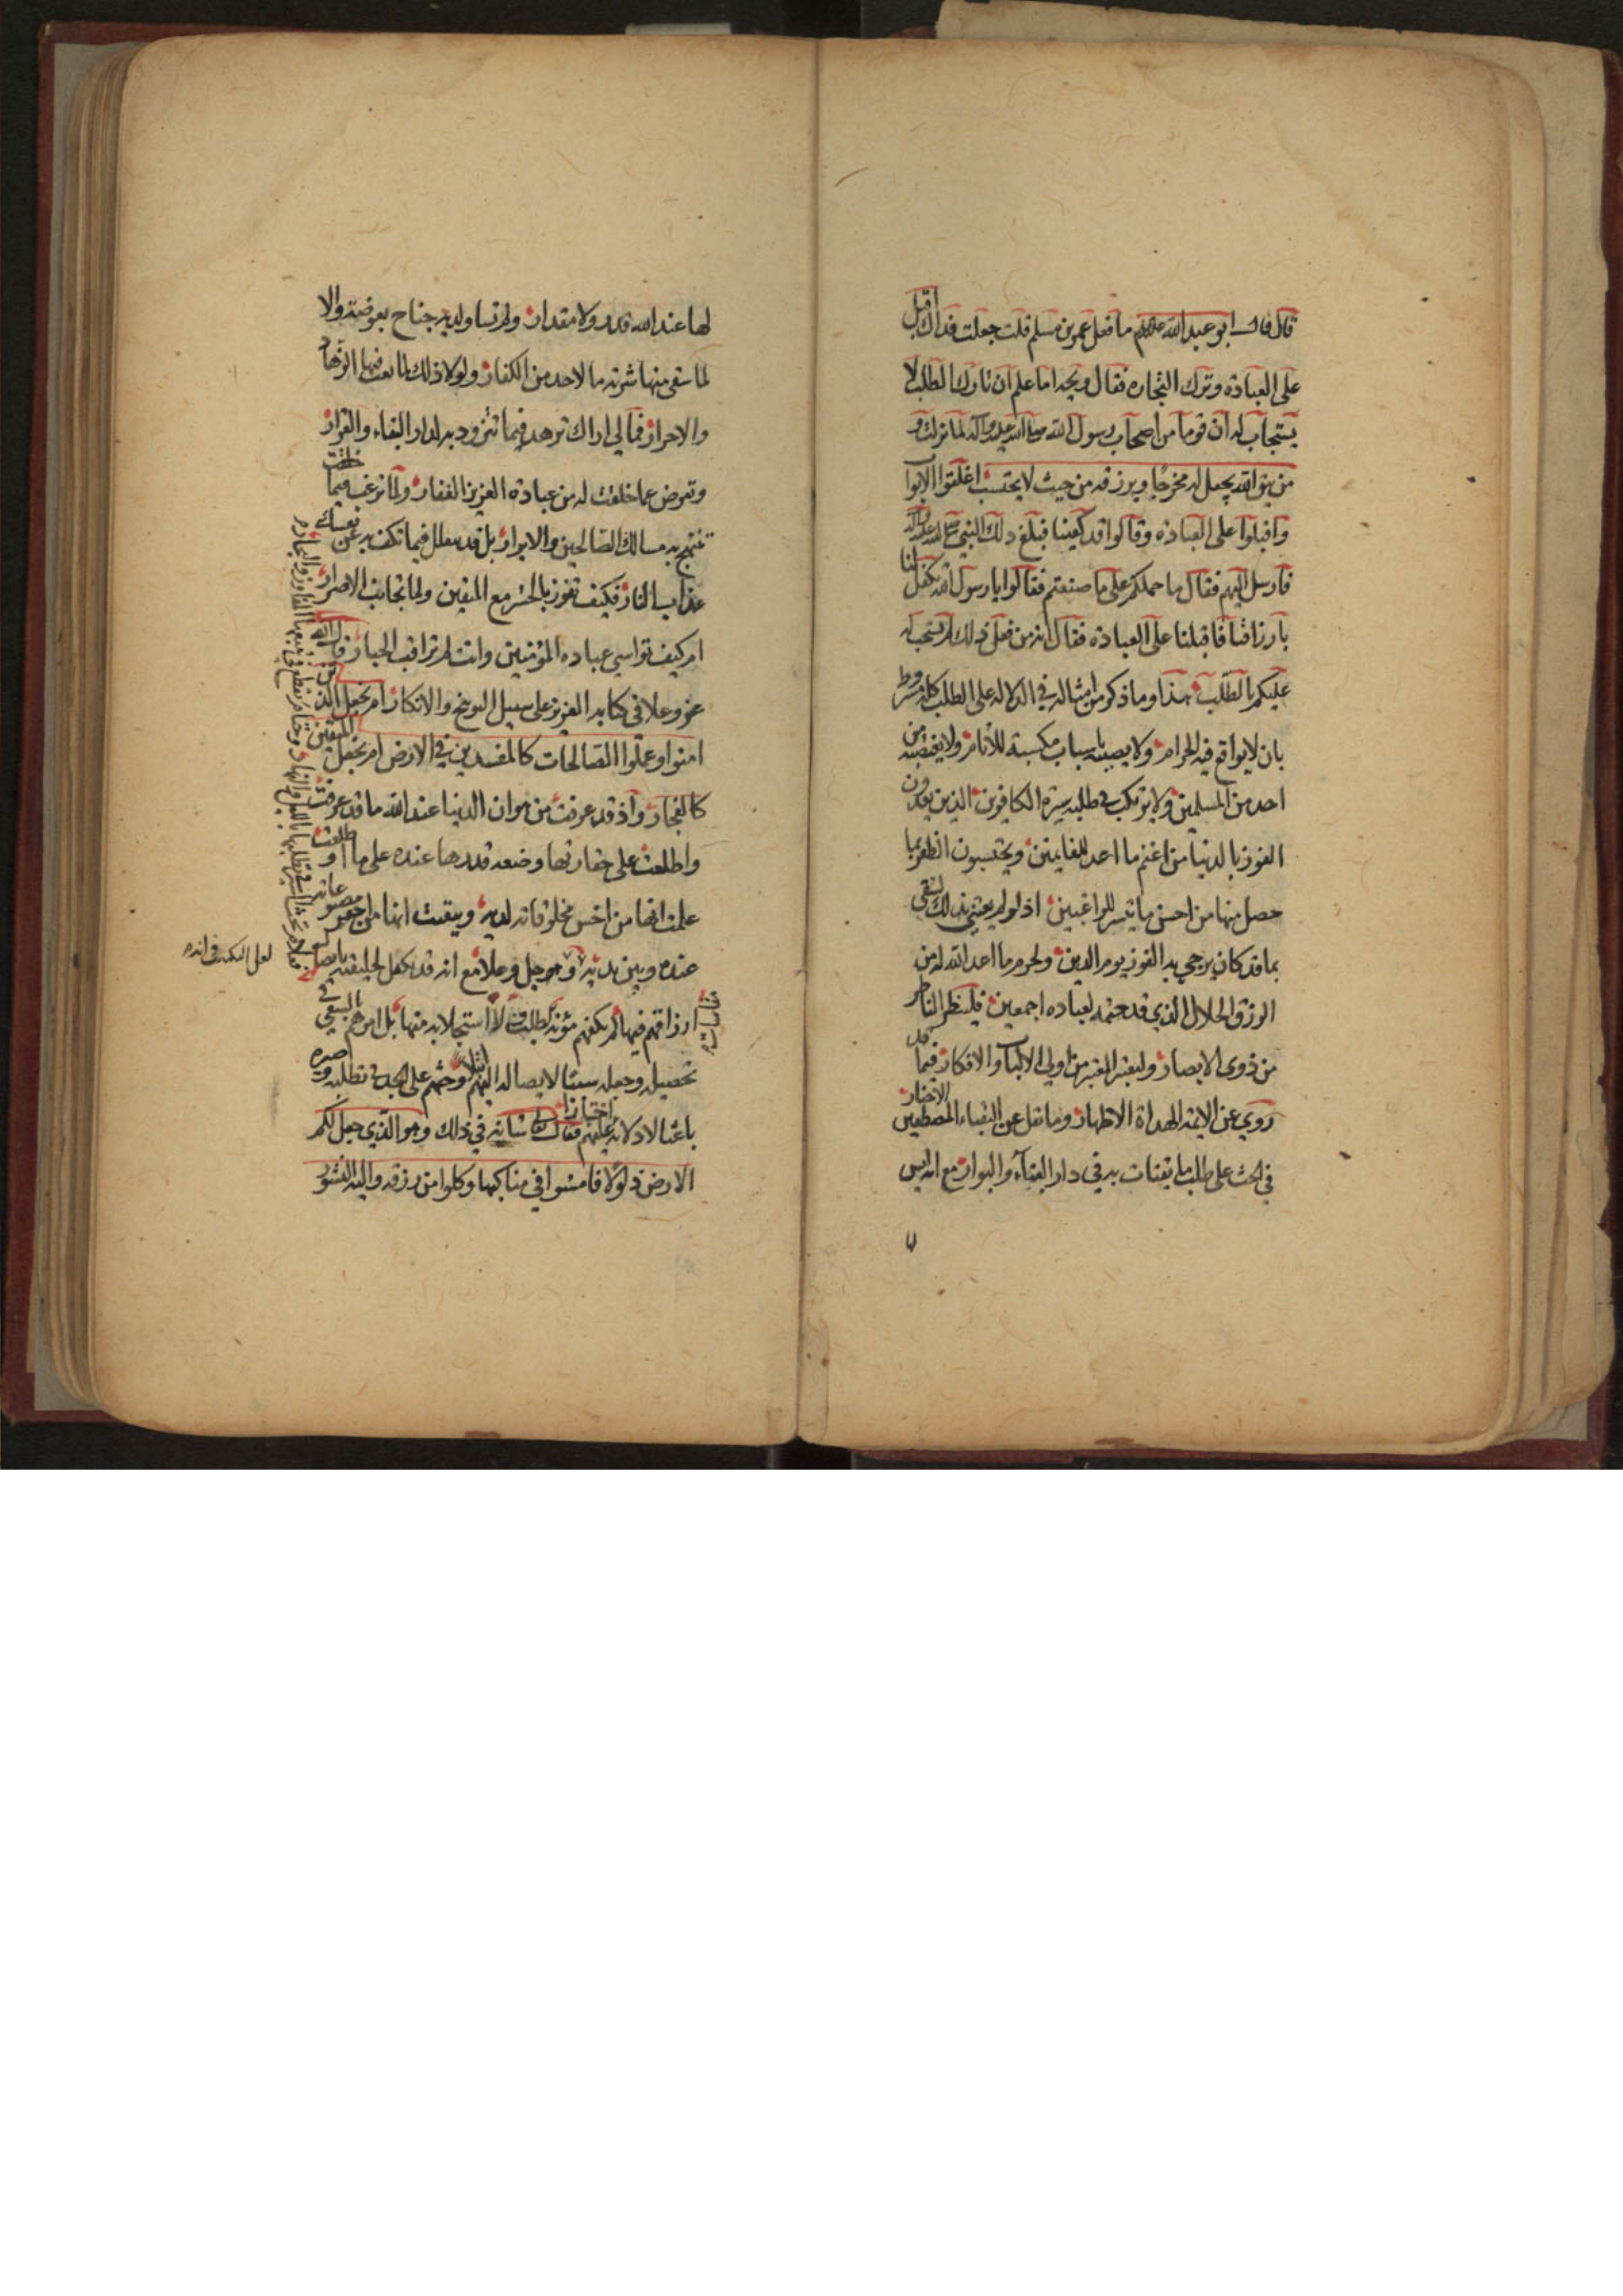 قال قال ابو عبد الله عليه السلام ما فعل عمر بن مسلم قلت جعلت فداك اقبل
على العبادة وترك التجارة فقال ويحه اما علم ان تارك الطلب لا
يستجاب له ان قوما من اصحاب رسول الله صلى الله عليه واله لما نزلت و
من يتق الله يجعل له مخرجا ويرزقه من حيث لا يحتسب اغلقوا الابواب
واقبلوا على العبادة وقالوا قد كفينا فبلغ ذلك النبي صلى الله عليه واله
فارسل اليهم فقال ما حملكم على ما صنعتم فقالوا يا رسول الله تكفل لنا
بارزاقنا فاقبلنا على العبادة فقال انه من فعل ذلك لم يستجب له
عليكم بالطلب هذا وما ذكر من امثاله في الدلالة على الطلب كله مشروط
بان لا يواقع فيه الحرام ولا يصيبه باسباب مكسبة للاثام ولا يغتصبه من
احد من المسلمين ولا يرتكب في طلبه سيرة الكافرين الذين يعدون
الفوز بالدنيا من اغنم ما اعد للغانمين ويحتسبون الظفر بما
حصل منها من احسن ما تيسر للراغبين اذ لو لم يعتني بذلك لشقي
بما قد كان يرجي به الفوز يوم الدين ولحرم ما اعد الله له من
الرزق الحلال الذي قد حتمه لعباده اجمعين فلينظر الناظر
من ذوي الابصار وليعتبر المعتبر من اولي الالباب والافكار فيما قد
روي عن الائمة الهداة الاطهار وما نقل عن النقباء المصطفين الاخيار
في الحث على طلب ما يقتات به في دار الفناء والبوار مع انه ليس
لها عند الله قدر ولا مقدار ولم تساو لديه جناح بعوضة والا
لما سقى منها شربة ما لاحد من الكفار ولولا ذلك لما تعب فيها الزهاد
والاحرار فمالي اراك تزهد فيما تتزود به لدار البقاء والقرار
وتعرض عما خلقت له من عبادة العزيز الغفار ولما ترغب فيما
تنتهج به مسالك الصالحين والابرار بل قد تعلل فيما تكف به عن نفسك
عذاب النار فكيف تفوز بالحشر مع المتقين ولما تجانب الاصرار
ام كيف تواسي عباده المؤمنين وانت لم تراقب الجبار قال الله
عز وعلا في كتابه العزيز على سبيل التوبيخ والانكار ام نجعل الذين
امنوا وعملوا الصالحات كالمفسدين في الارض ام نجعل المتقين
كالفجار واذ قد عرفت من هوان الدنيا عند الله ما قد عرفت
واطلعت على حقارتها وضعة قدرها عنده على ما اطلعت و
علمت انها من اخس مخلوقاته لديه وتيقنت انها من احقر مصنوعاته
عنده وبين يديه وهو جل وعلا مع انه قد تكفل لخليقته بايصال
ارزاقهم فيها لم يكفهم مؤنة الطلب لاستجلابه منها بل امرهم بالسعي في
تحصيله وجعله سببا لايصاله اليهم وحثهم على الجد في تطلبه وصيره
باعثا لادلاله عليهم فقال جل شانه في ذلك وهو الذي جعل لكم
الارض ذلولا فامشوا في مناكبها وكلوا من رزقه واليه النشور
ابتلاء
اختبارا